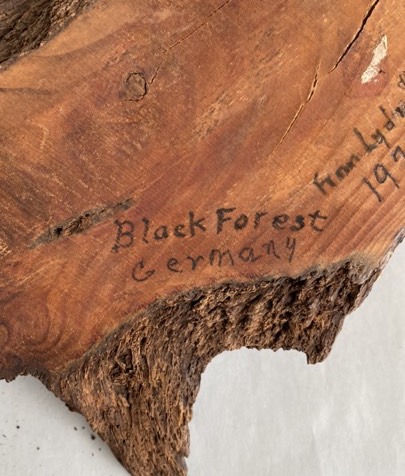 Black Forest
Germany
from Lyd
197